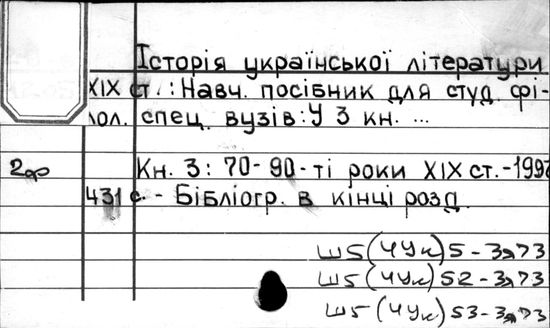 Історія української літератури
XIX ст.: Навч. посібник для студ. фі-
лол. спец. вузів: У 3 кн. ...
2ф Кн. 3: 70-90-ті роки XIX ст.-1997
431 с. - Бібліогр. в кінці розд.
Ш5(4Ук)5-3я73
Ш5(4Ук)52-3я73
Ш5(4Ук)53-3я73